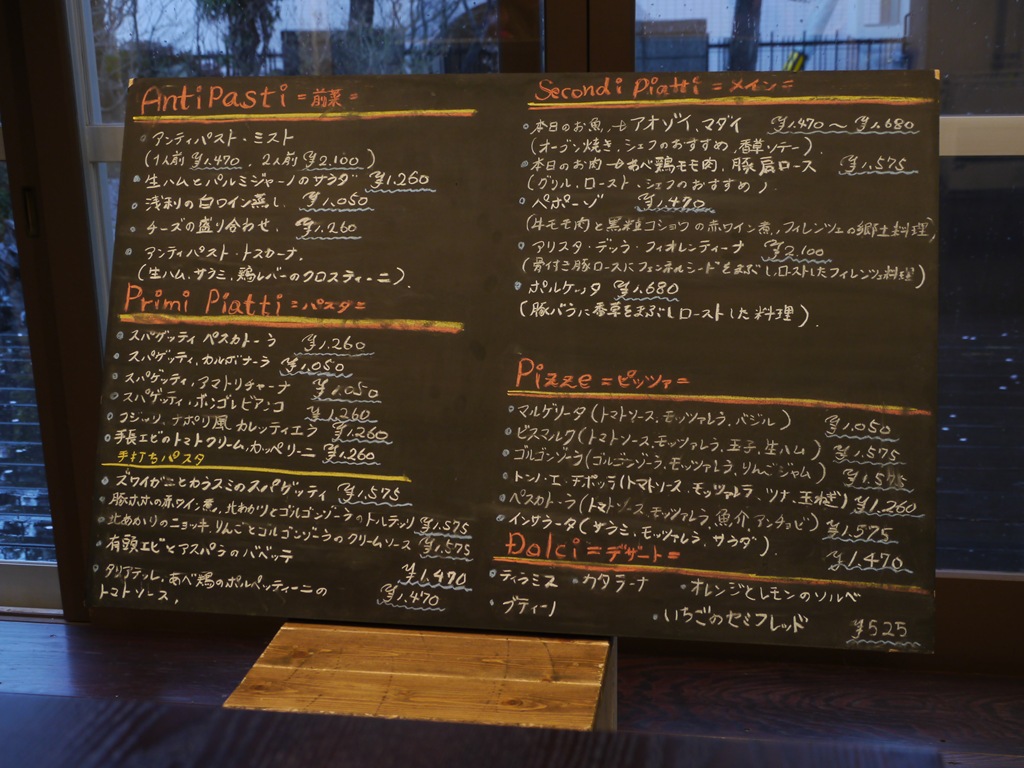 AntiPasti = 前菜 =
アンティパスト・ミスト
(1人前 ¥1.470 、2人前 ¥2.100 )
生ハムとパルミジャーノのサラダ ¥1.260
浅利の白ワイン蒸し、 ¥1.050
チーズの盛り合わせ、 ¥1.260
アンティパスト・トスカーナ
(生ハム、サラミ、鶏レバーのクロスティーニ)、
Primi Piatti = パスタ =
スパゲッティ ペスカトーラ ¥1.260
スパゲッティ、カルボナーラ ¥1.050
スパゲッティ、アマトリチャーナ ¥1.050
スパゲッティ、ボンゴレビアンコ ¥1.260
ナポリ風 カレッティエラ ¥1.260
手長エビのトマトクリーム、カッペリーニ ¥1.260
手打ちパスタ
ズワイガニとカラスミのスパゲッティ ¥1.575
豚ホホの赤ワイン煮、北あかりとゴルゴンゾーラのトルテッリ ¥1.575
北あかりのニョッキ、りんごとゴルゴンゾーラのクリームソース ¥1.575
有頭エビとアスパラのババッテ ¥1.470
タリアテッレ、あべ鶏のポルペッティーニの ¥1.470
トマトソース、
Secondi Piatti = メイン =
本日のお魚、→ アオゾイ、マダイ ¥1.470 〜 ¥1.680
(オーブン焼き、シェフのおすすめ、香草ソテー)、
本日のお肉 → あべ鶏モモ肉、豚肩ロース ¥1.575
(グリル、ロースト、シェフのおすすめ)、
ペポーゾ ¥1.470
(牛モモ肉と黒粒コショウの赤ワイン煮、フィレンツェの郷土料理)
アリスタ・デッラ・フィオレンティーナ ¥2.100
(骨付き豚ロースにフェンネルシードをまぶしローストしたフィレンツェ料理)
ポルケッタ ¥1.680
(豚バラに香草をまぶしローストした料理)、
Pizze = ピッツァ =
マルゲリータ(トマトソース、モッツァレラ、バジル) ¥1.050
ビスマルク(トマトソース、モッツァレラ、玉子、生ハム) ¥1.575
ゴルゴンゾーラ(ゴルゴンゾーラ、モッツァレラ、りんごジャム) ¥1.575
トンノ・エ・チポッラ(トマトソース、モッツァレラ、ツナ、玉ねぎ) ¥1.260
ペスカトーラ(トマトソース、モッツァレラ、魚介、アンチョビ) ¥1.575
インサラータ(サラミ、モッツァレラ、サラダ)、 ¥1.470
Dolci = デザート =
ティラミス ・カタラーナ ・オレンジとレモンのソルベ
ブディーノ ・いちごのセミフレッド ¥525